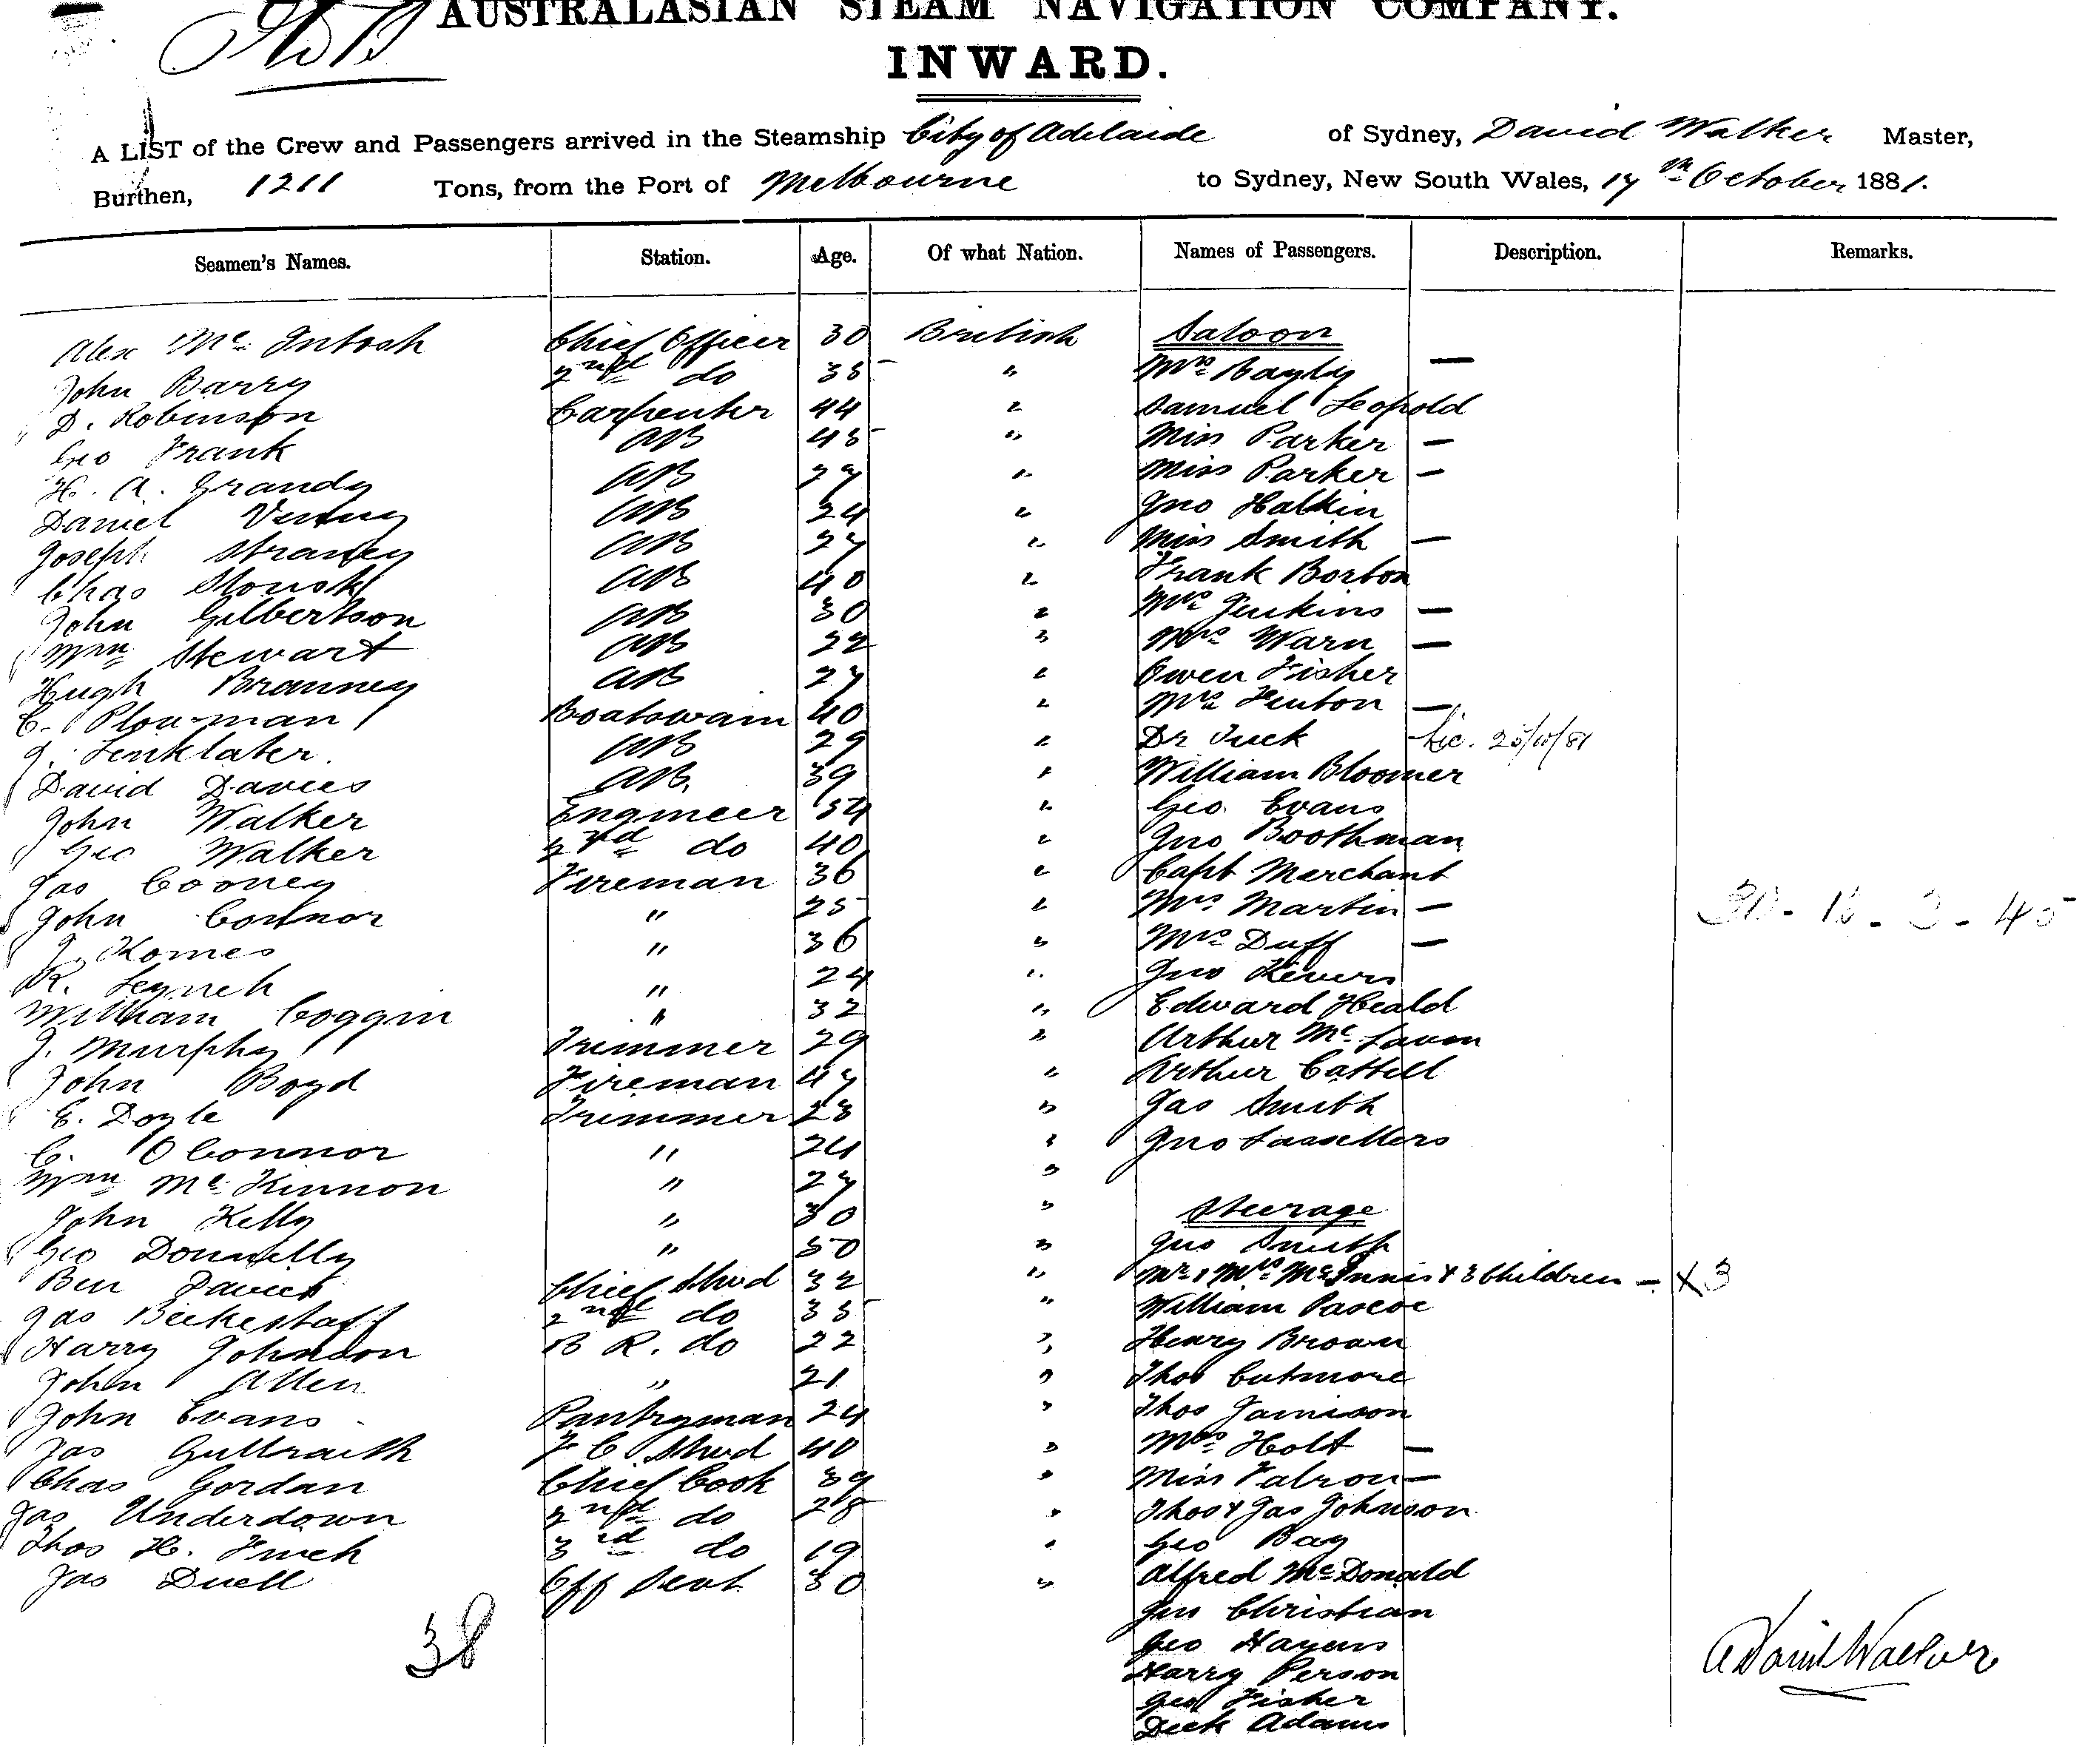 AUSTRALASIAN STEAM NAVIGATION COMPANY.
INWARD.
A LIST of the Crew and Passengers arrived in the Steamship City of Adelaide of Sydney, David Walker Master,
Burthen, 1211 Tons, from the Port of Melbourne to Sydney, New South Wales, 17th October 1881.
Seamen's Names. Station. Age. Of what Nation. Names of Passengers. Description. Remarks.
Alex Mc Intosh Chief Officer 30 British Saloon
John Barry 2nd do 35 " Mrs Bayly —
D. Robinson Carpenter 44 " Samuel Leopold
Geo Frank AB 45 " Miss Parker —
H. A. Grandy AB 27 " Miss Parker —
Daniel AB 24 " Jno Halkin
Joseph Straney AB 27 " Miss Smith —
Chas AB 40 " Frank Borton
John Gilbertson AB 30 " Mrs Jenkins —
Wm Stewart AB 22 " Mrs Warn —
Hugh Branney AB 27 " Owen Fisher
C. Plowman Boatswain 40 " Mrs Fenton —
J. Linklater AB 29 " Dr Tuck
David Davies AB. 39 " William Bloomer
John Walker Engineer 54 " Geo Evans
Geo Walker 2nd do 40 " Jno Boothman
Jas Cooney Fireman 36 " Capt Merchant
John Connor " 25 " Mrs Martin —
J. Homes " 36 " Mrs Duff —
R. Leynch " 24 " Jno Kevers
William Coggin " 32 " Edward Heald
J. Murphy Trimmer 29 " Arthur Mc
John Boyd Fireman 47 " Arthur Cattell
E. Doyle Trimmer 23 " Jas Smith
C. O Connor " 24 " Jno
Wm Mc Kinnon " 27 "
John Kelly " 30 " Steerage
Geo Donnelly " 50 " Jno Smith
Ben Davies Chief Stwd 32 " Mr & Mrs McInnis & 3 Children — X 3
Jas 2nd do 35 " William Pascoe
Harry Johnson B R. do 22 " Henry Brown
John Allen " 21 " Thos Cutmore
John Evans Pantryman 24 " Thos Jamison
Jas F C Stwd 40 " Mrs Holt —
Chas Gordan Chief Cook 39 " Miss —
Jas Underdown 2nd do 28 " Thos & Jas Johnson
Thos H. 3rd do 19 " Geo Bay
Jas Duell 30 " Alfred McDonald
Jno Christian
38 Geo
Harry Person
Geo Fisher
Dick Adams
David Walker